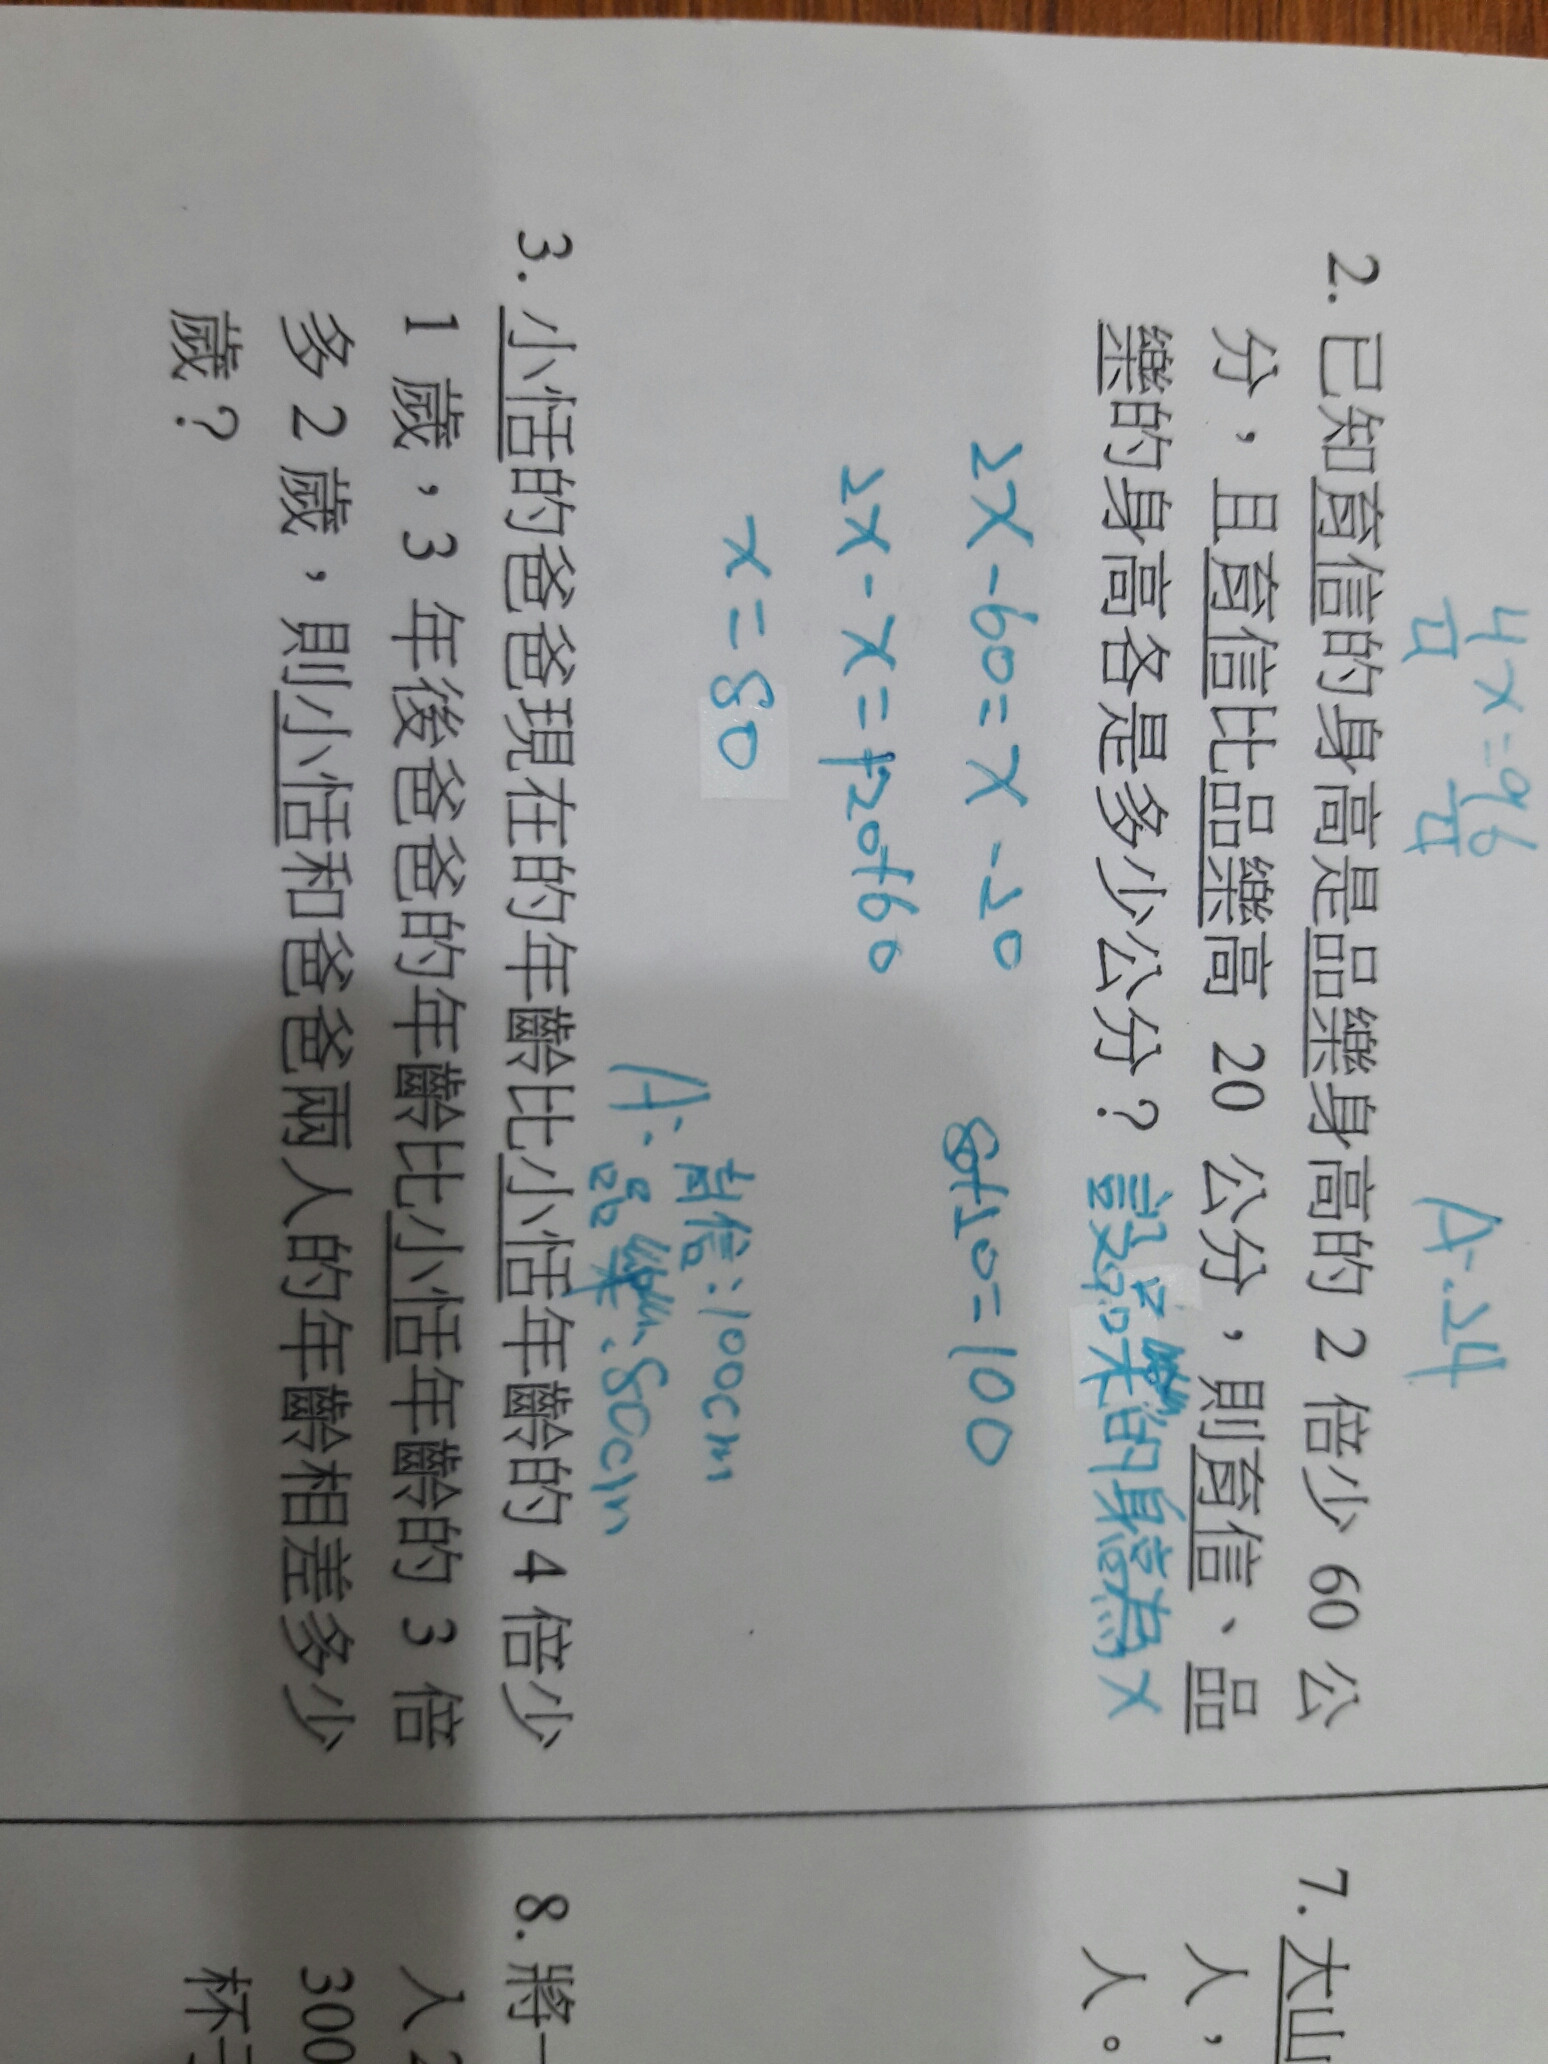 4x=96
4 4
A:24
2. 已知育信的身高是品樂身高的 2 倍少 60 公
分，且育信比品樂高 20 公分，則育信、品
樂的身高各是多少公分？設品樂的身高為x
2x-60=x-20
80+20=100
2x-x=+20+60
x=80
A: 育信:100cm
品樂:80cm
3. 小恬的爸爸現在的年齡比小恬年齡的 4 倍少
1 歲，3 年後爸爸的年齡比小恬年齡的 3 倍
多 2 歲，則小恬和爸爸兩人的年齡相差多少
歲？
7. 大山
人，
人。
8. 將一
人 2
300
杯子